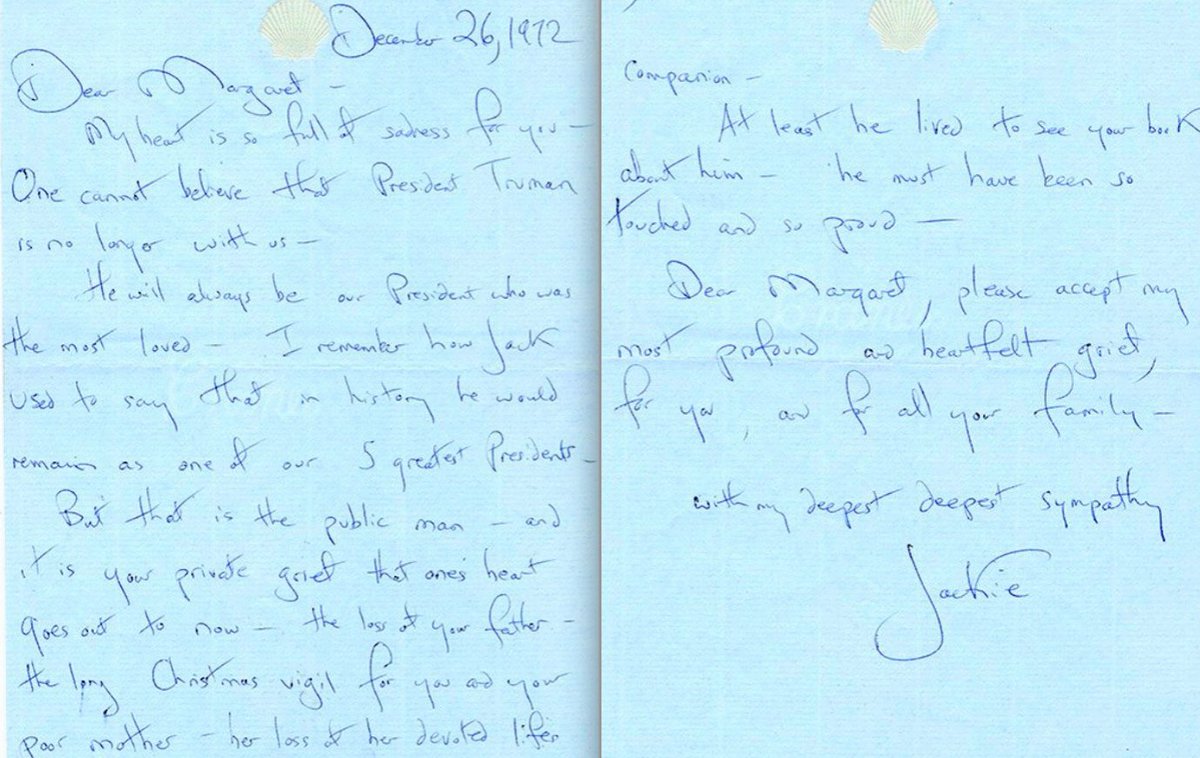 December 26, 1972
Dear Margaret —
My heart is so full of sadness for you —
One cannot believe that President Truman
is no longer with us —
He will always be our President who was
the most loved — I remember how Jack
used to say that in history he would
remain as one of our 5 greatest Presidents —
But that is the public man — and
it is your private grief that one's heart
goes out to now — the loss of your father —
the long Christmas vigil for you and your
poor mother — her loss of her devoted life's
Companion —
At least he lived to see your book
about him — he must have been so
touched and so proud —
Dear Margaret, please accept my
most profound and heartfelt grief,
for you, and for all your family —
with my deepest deepest sympathy
Jackie